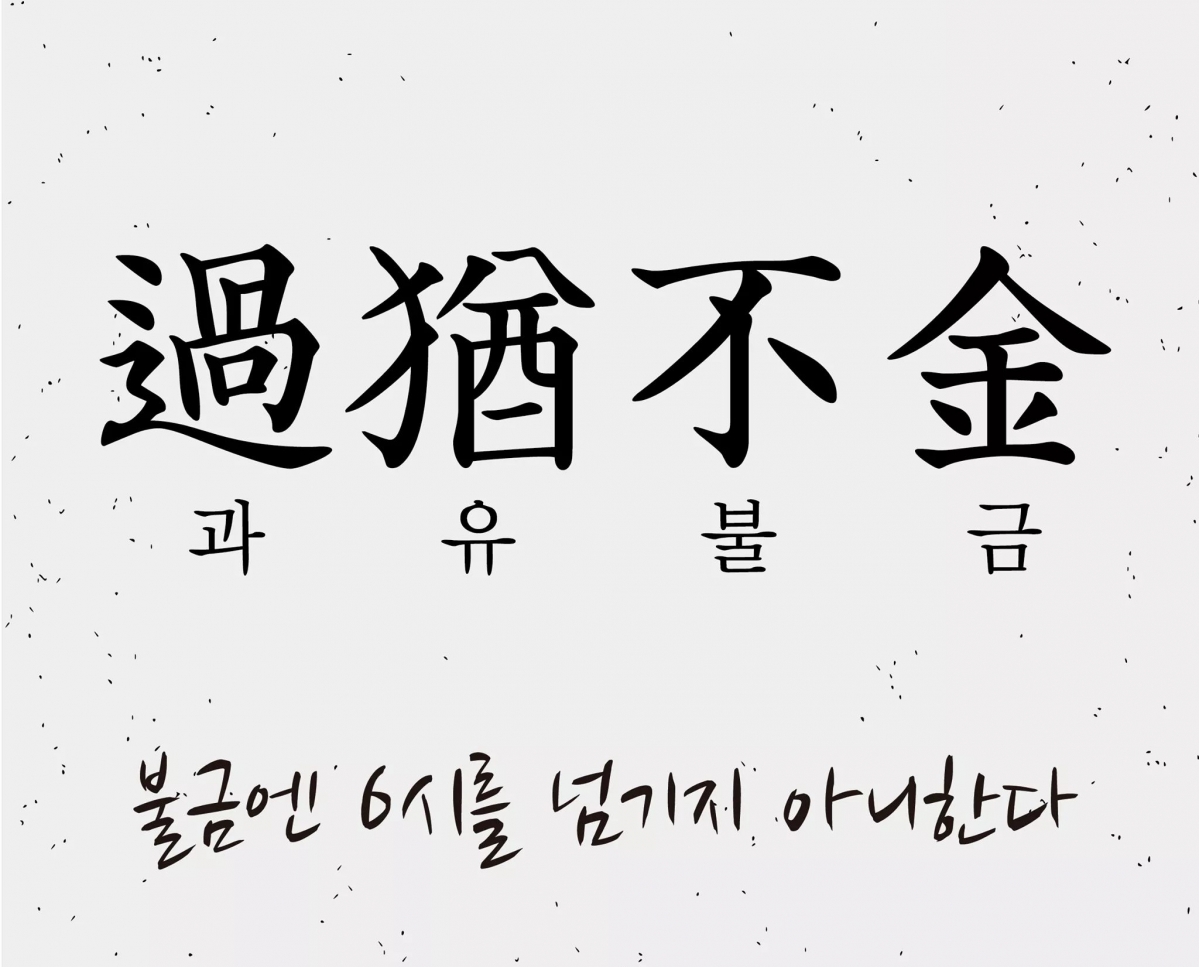 過猶不金
과 유 불 금
불금엔 6시를 넘기지 아니한다